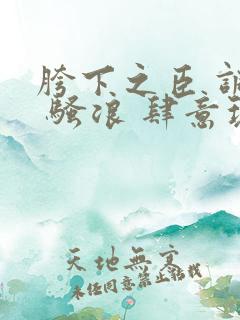 胯下之臣
骚浪 肆意
天地無寬
未经同意禁止转载